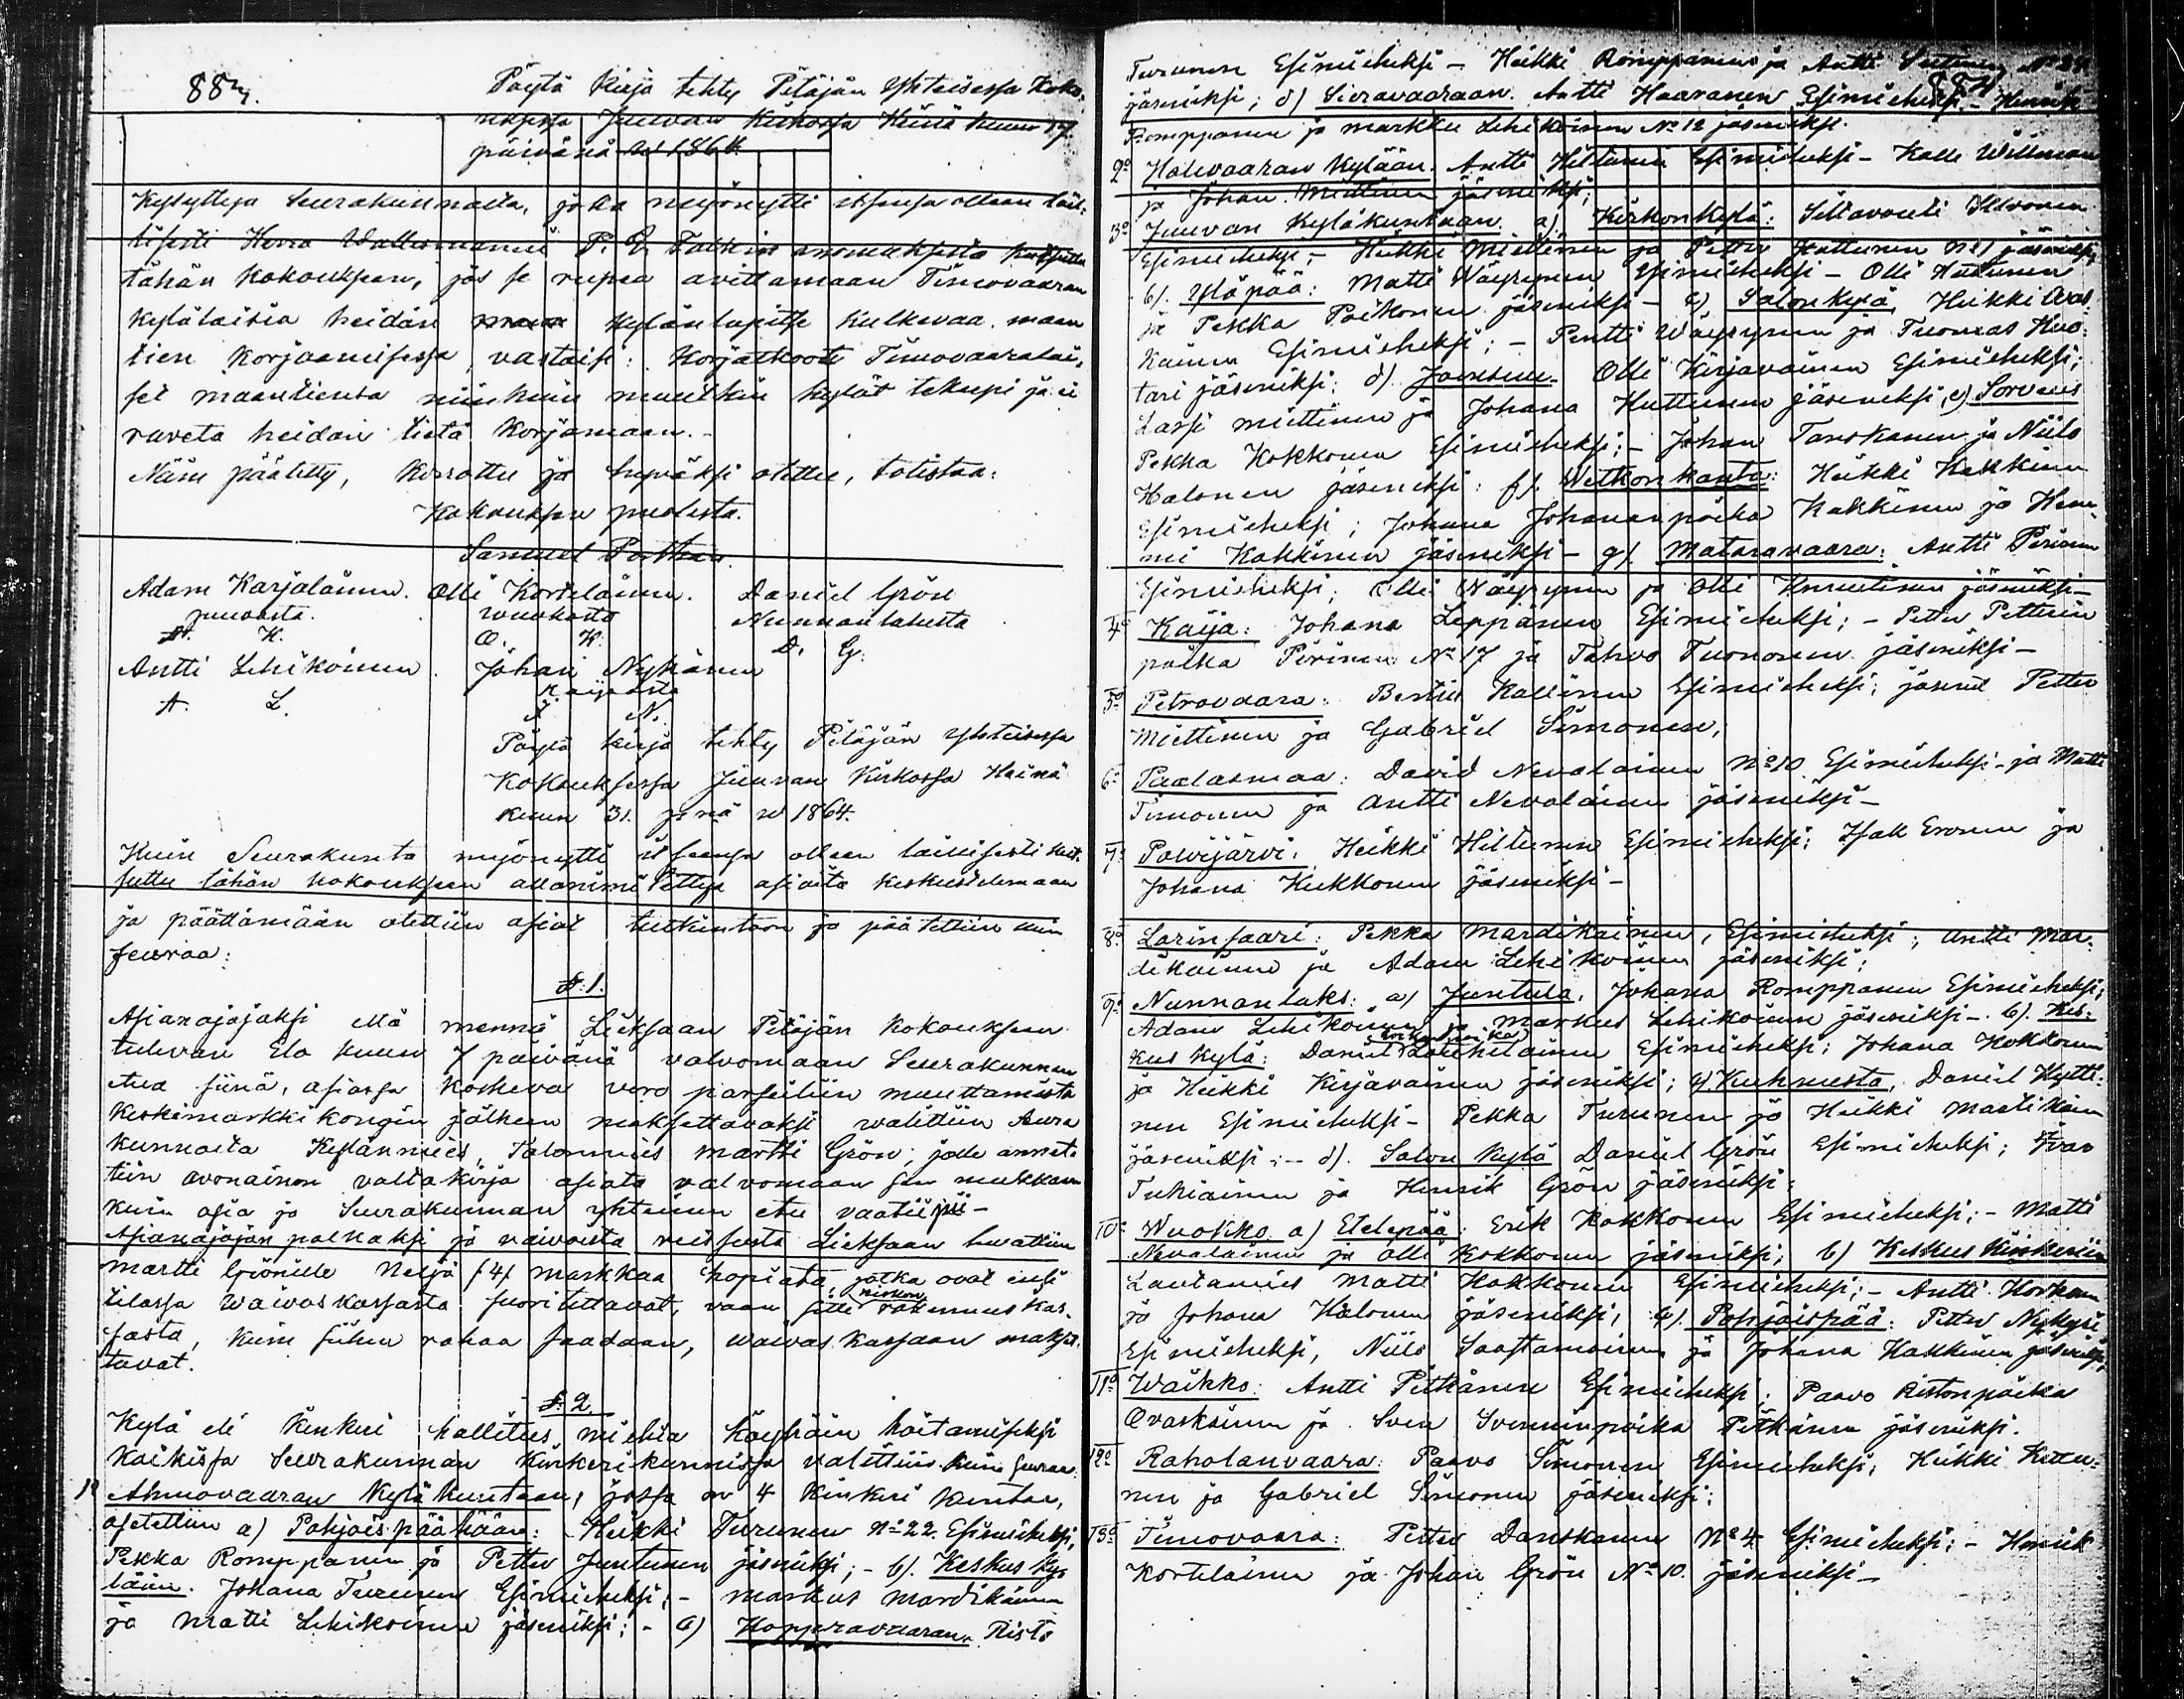 88.
Pöytä Kirja tehty Pitäjän Yhteisessa Koko-
uksessa Juuwan Kirkossa Heinä kuun 17.
päivänä w 1864.
Kysyttyä Seurakunnalta, joka myönytti itsensä olleen lail-
lisesti Herra Wallesmannin P. E. Falkin anomuksesta kutsuttu
tähän Kokoukseen, jos se rupea avittamaan Timovaaran
kyläläisiä heidän kylänlapitse kulkevaa maan
tien korjaamisessa, vastaisi: Korjatkoot Timovaaralai-
set maantiensä niinkuin muutkin kylät tekepi ja ei
ruveta heidän tietä korjamaan.-
Näin päätetty, kerrottu ja hyväksi otettu, totistaa:
Kokouksen puolesta.
Samuel Porthan
Adam Karjalainen. Olli Kortelainen. Daniel Grön
Juuvasta. Wuokosta Nunnanlahesta
A. K. O. K. D. G.
Antti Lehikoinen. Johan Nykänen
Kaijasta
A. L. J. N.
Pöytä kirja tehty Pitäjän Yhteisessa
Kokouksessa Juuvan Kirkossa Heinä
kuun 31. p:nä w 1864.
Kuin Seurakunta myönytti itseensä olleen laillisesti kut-
suttu tähän kokoukseen allanimitettyjä asioita keskustelemaan
ja päättämään otettiin asiat tutkintoon ja päätettiin kuin
seuraa:
§. 1.
Asianajajaksi että mennä Lieksaan Pitäjän Kokoukseen
tulevan Elo kuun 7 päivänä valvomaan Seurakunnan
etua siinä, asiassa koskeva vero parseliin muuttamista
keskimarkki kongin jälkeen maksettavaksi valittiin Seura
kunnalta Kylänmies, Talonmies Martti Grön; jolle annet-
tiin avonainen valta kirja asiata valvomaan sen mukkaan
kuin asia ja Seurakunnan yhteinen etu vaatiipi -
Asianajajan palkaksi ja vaivoista reissusta Lieksaan luvattiin
Martti Grönille Neljä (4) markkaa hopiata, jotka ovat ensi
tilassa Waivaskassasta suoritettavat, vaan sitte kirkon rakennus kas-
sasta, kuin siihen rahaa saadaan, waivas kassaan makset-
tavat.
§. 2.
Kylä eli Kinkeri hallitus miehiä Köyhäin hoitamiseksi
Kaikissa Seurakunnan Kinkeri-kunnissa valittiin kuin seuraa:
1o Ahmovaaran Kyläkuntaan, jossa on 4 Kinkeri kuntaa,
asetettiin a) Pohjois päähään: Heikki Turunen No 22. Esimieheksi,
Pekka Romppanen ja Petter Juntunen jäseniksi; - b). Keskus Ky-
lään. Johana Turunen Esimieheksi; - Markus Mardikainen
ja Matti Lehikoinen jäseniksi; - c) Kopperavaaran. Risto
Turunen Esimieheksi - Heikki Romppanen ja Antti No 24
jäseniksi; d) Sieravaaraan. Antti Haaranen Esimieheksi - Henrik
Romppanen ja Markku Lehikoinen No 12 jäseniksi.
2o Halivaaran Kylään. Antti Hiltunen Esimieheksi - Kalle Willman
ja Johan Miettinen jäseniksi;
3o Juuvan Kyläkuntaan. a). Kirkonkylä: Siltavouti
Esimieheksi; - Heikki Miettinen ja Petter Hattunen No 1 jäseniksi;
b). Yläpää: Matti Wäyrynen Esimieheksi - Olli Huttunen
ja Pekka Poikonen jäseniksi - c) Salonkylä, Heikki Ovas-
kainen Esimieheksi; - Pentti Wäyrynen ja Tuomas Kuo-
tari jäseniksi; d). Olli Kirjavainen Esimieheksi;
Lassi Miettinen ja Johana Huttunen jäseniksi, e)
Pekka Kokkonen Esimieheksi; - Johan Tanskanen ja Niilo
Halonen jäseniksi: f). Wetkonkanta: Heikki Kakkinen
Esimieheksi; Johana Johananpoika Kakkinen ja Hem-
mi Kakkinen jäseniksi - g). Mataravaara: Antti Pirinen
Esimieheksi; Olli Wäyrynen ja Olli Knuutinen jäseniksi -
4o Kaija: Johana Leppänen Esimieheksi; - Petter Petterin
poika Pirinen No 17 ja Tahvo Tuononen jäseniksi -
5o Petrovaara: Kallinen Esimieheksi; jäsenet Petter
Miettinen ja Gabriel Simonen;
6o Paalasmaa: David Nevalainen No 10 Esimieheksi - ja Matti
Timonen ja Antti Nevalainen jäseniksi -
7o Polvijärvi: Heikki Hiltunen Esimieheksi; Isak Eronen ja
Johana Kukkonen jäseniksi -
8o Larinsaari: Pekka Mardikainen, Esimieheksi; Antti Mar-
dikainen ja Adam Lehikoinen jäseniksi;
9o Nunnanlaks: a) Juntula, Johana Romppanen Esimieheksi;
Adam Lehikoinen ja Markus Lehikoinen jäseniksi -. b). Kes-
kus kylä: Daniel Esimieheksi; Johana Kokkonen
ja Heikki Kirjavainen jäseniksi; c) Kuhnusta, Daniel Hytti-
nen Esimieheksi - Pekka Turunen ja Heikki Martikain
jäseniksi; - d). Salon kylä Daniel Grön Esimieheksi; Ivar
Tukiainen ja Henrik Grön jäseniksi;
10o Wuokko a) Etelepää: Erik Kokkonen Esimieheksi; - Matti
Nevalainen ja Olli Kokkonen jäseniksi; b) Keskus Kinkeriin
Lautamies Matti Kokkonen Esimieheksi; - Antti Korhonen
ja Johana Halonen jäseniksi; c). Pohjoispää: Petter Nykyri
Esimieheksi, Niilo Saastamoinen ja Johana Hakkinen jäseniksi;
11o Waikko: Antti Pitkänen Esimieheksi; Paavo Ristonpoika
Ovaskainen ja Sven Svenninpoika Pitkänen jäseniksi.
12o Raholanvaara: Paavo Simonen Esimieheksi; Heikki Kettu-
nen ja Gabriel Simonen jäseniksi;
13o Timovaara: Petter Danskanen No 4 Esimieheksi; - Henrik
Kortelainen ja Johan Grön No 10. jäseniksi -